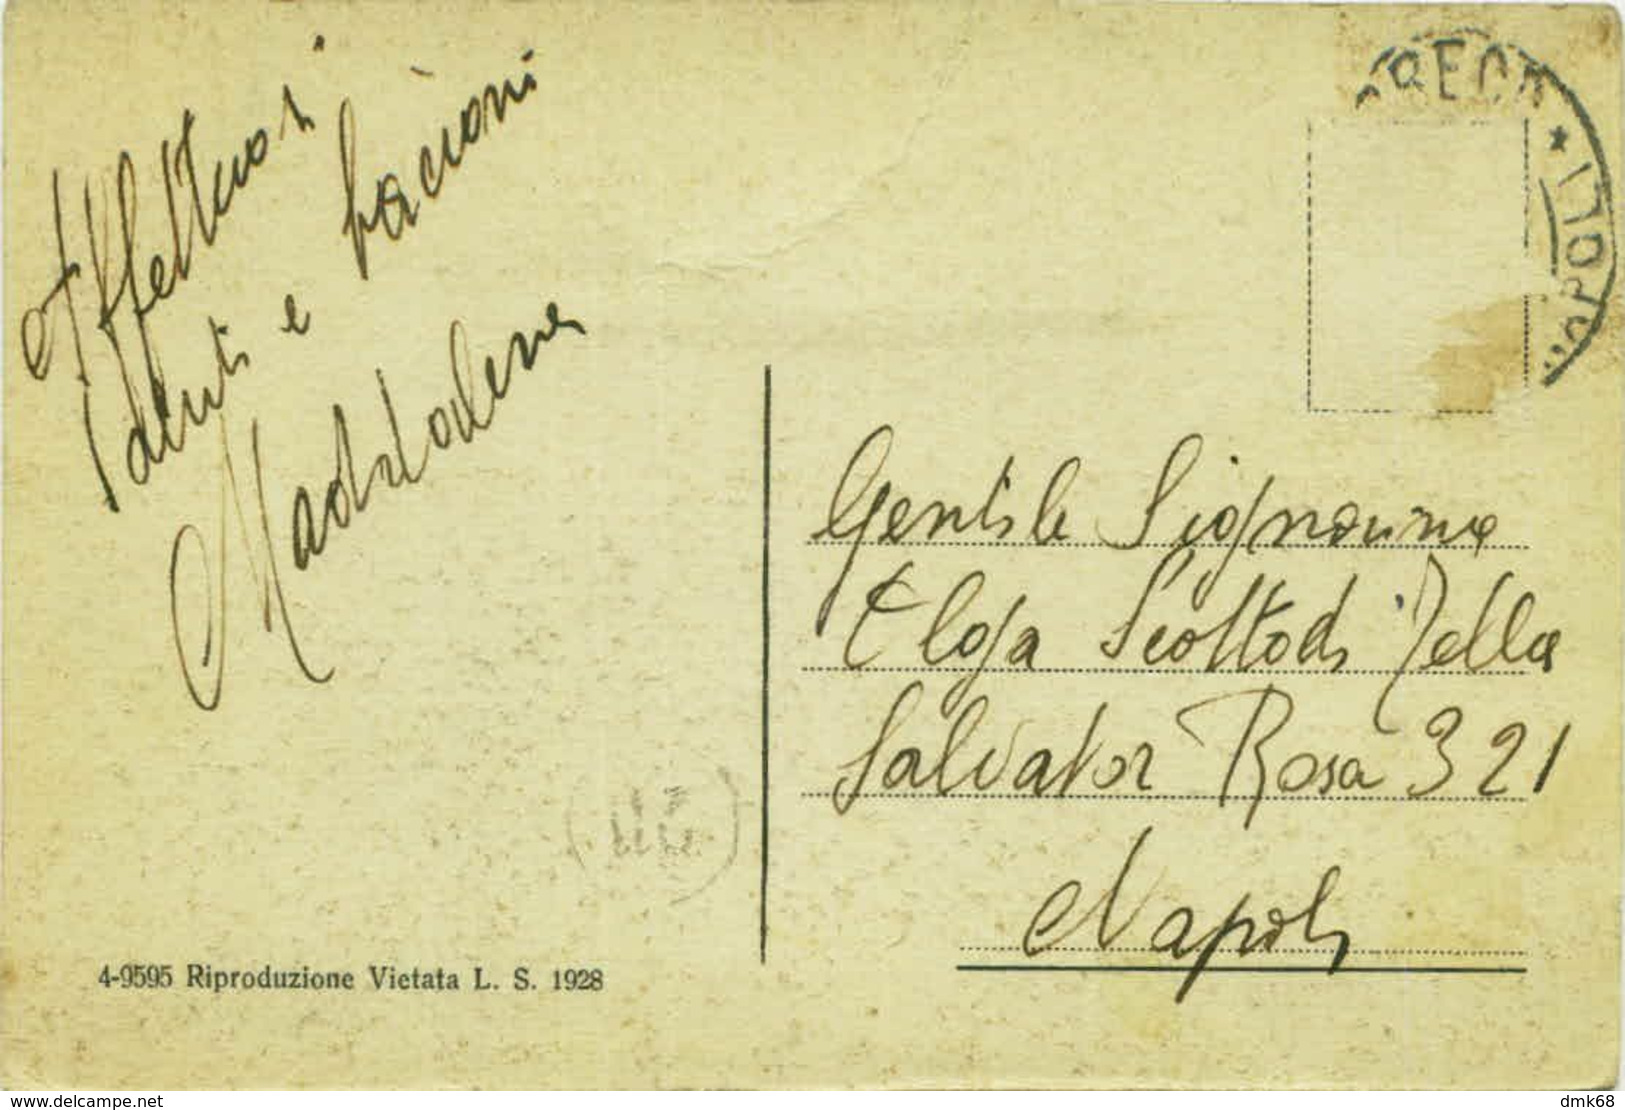 Affettuosi
saluti e bacioni
Maddalena
GRECO * (NAPOLI)
Gentile Signorina
Elga Scotto di Tella
Salvator Rosa 321
Napoli
4-9595 Riproduzione Vietata L. S. 1928
www.delcampe.net
dmk68